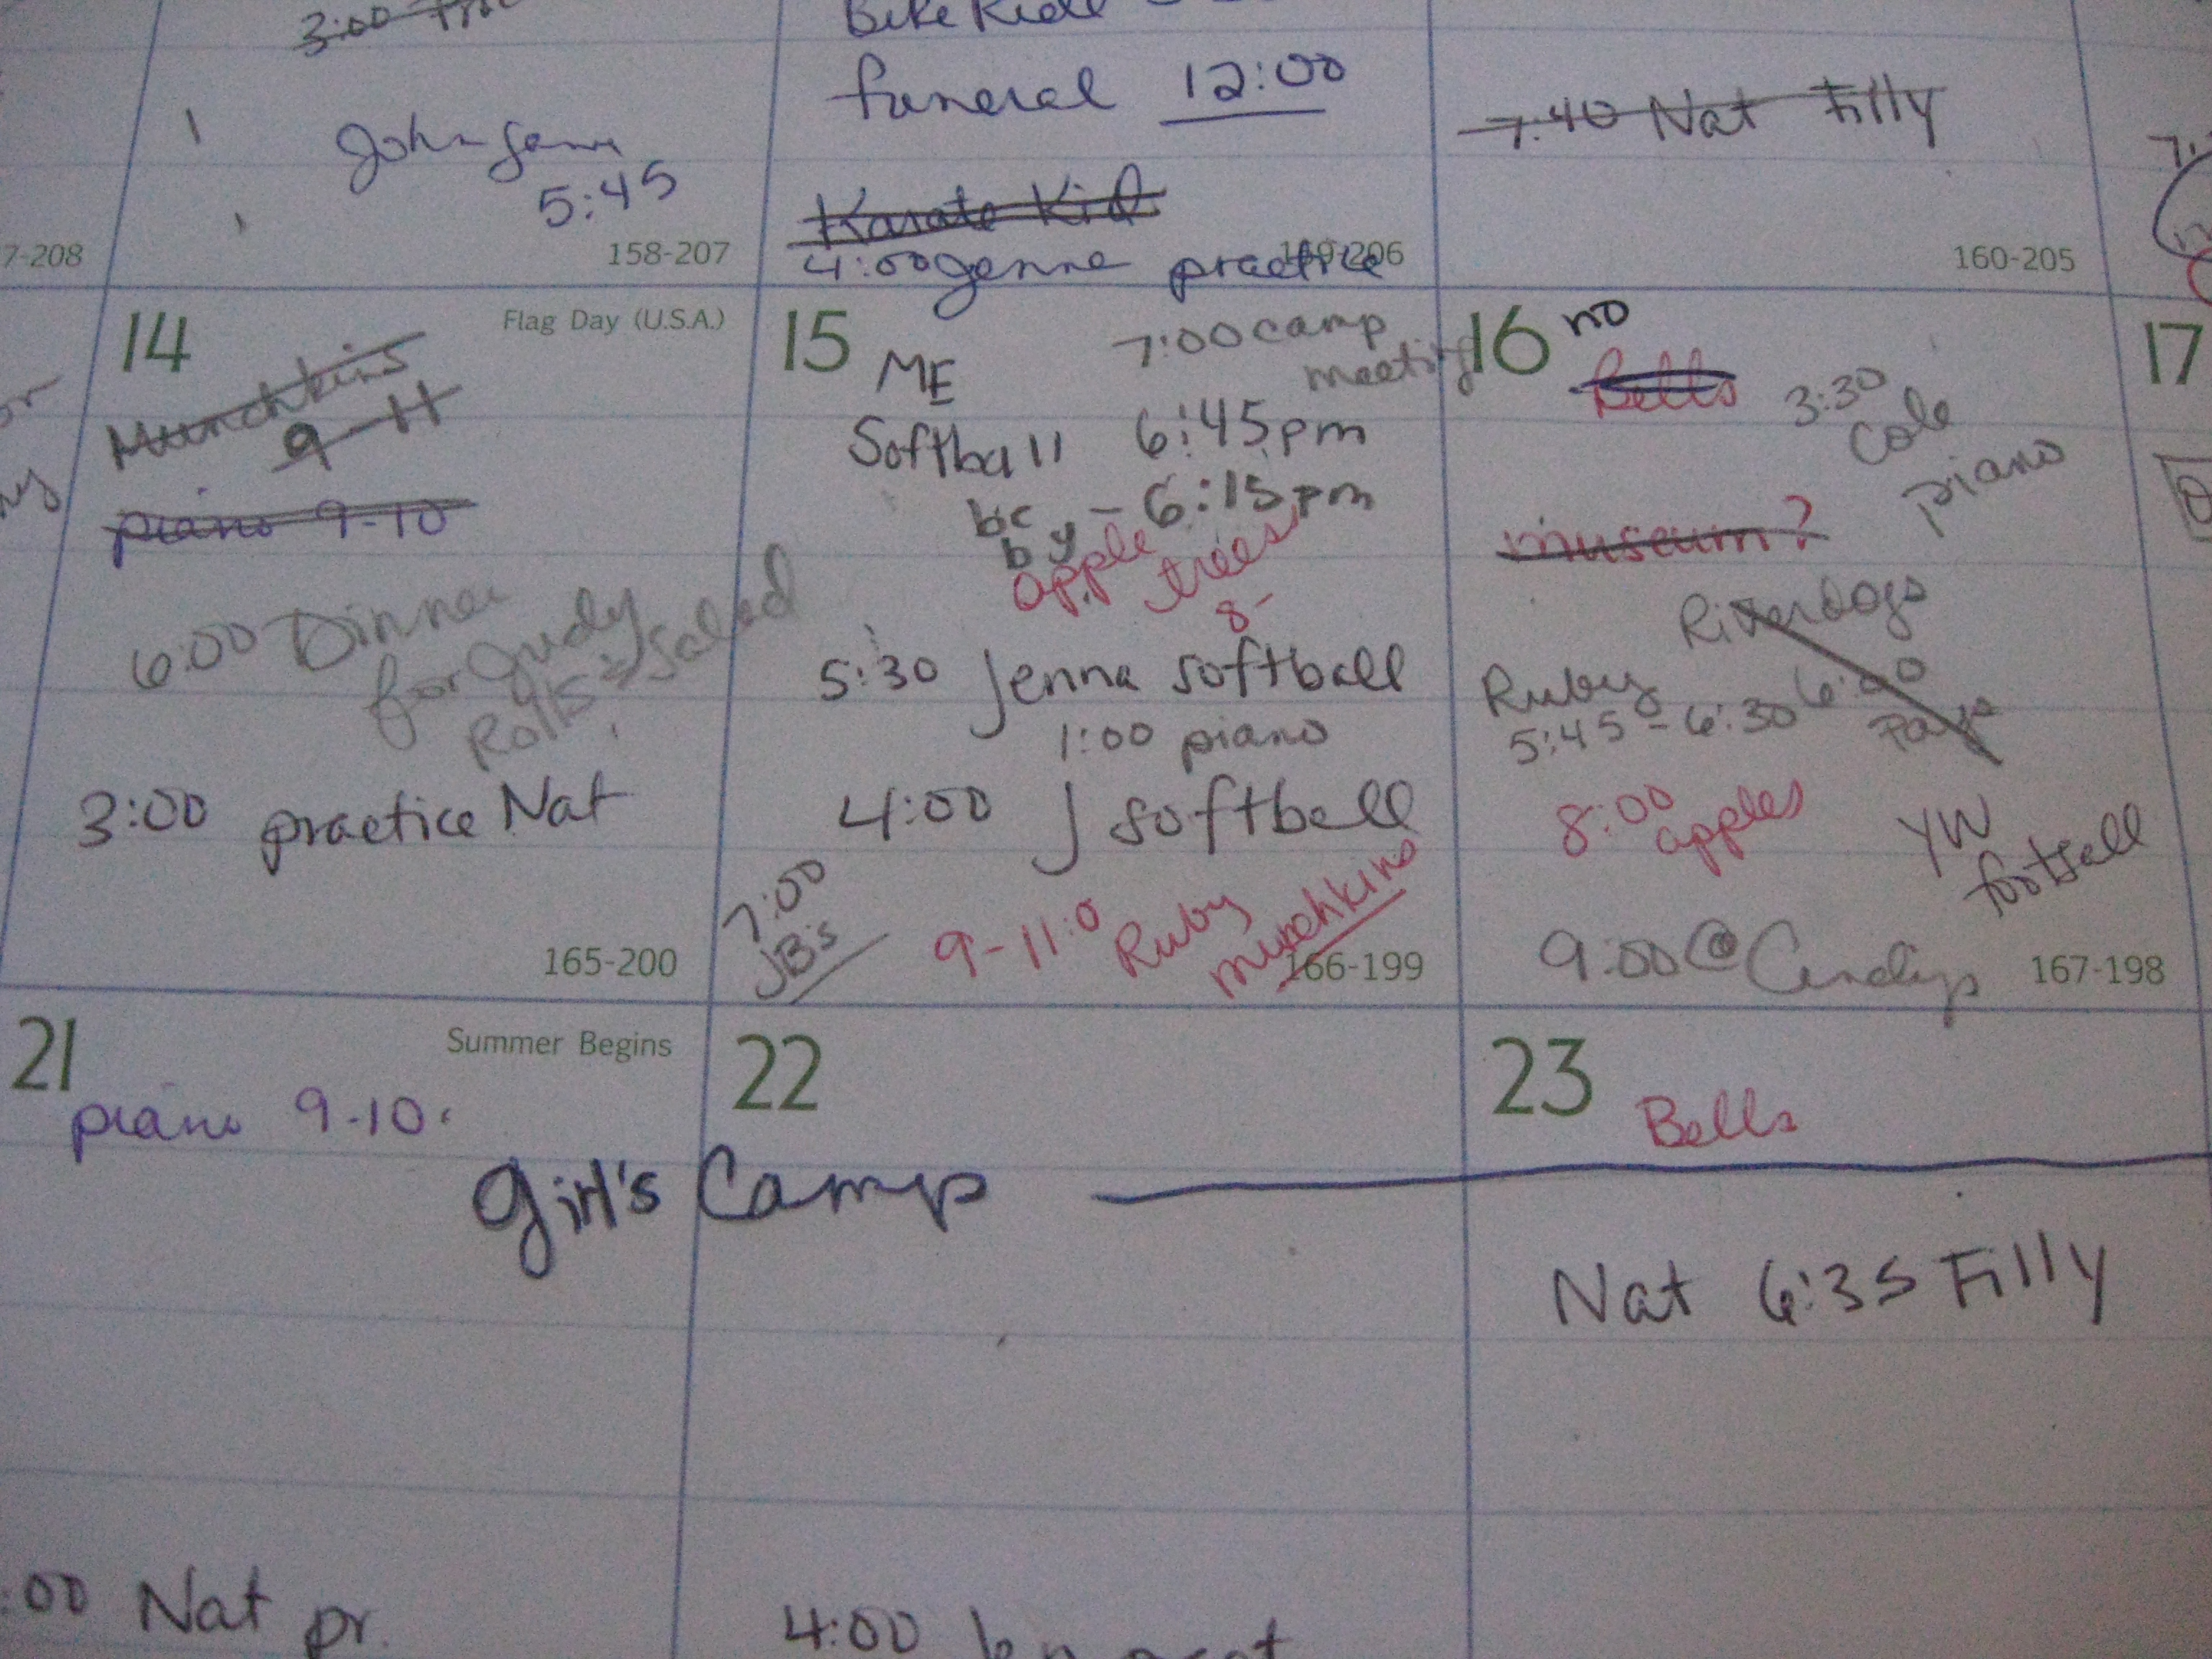 3:00
Bike Ride
funeral 12:00
7:40 Nat Filly
John Game
5:45
Karate Kid
4:00 Jenna practice
7-208
158-207
159-206
160-205
14
Flag Day (U.S.A.)
Munchkins
9-11
piano 9-10
6:00 Dinner
for Judy
Rolls & Salad
3:00 practice Nat
165-200
15
7:00 camp
meeting
ME
Softball 6:45pm
be
by - 6:15pm
apple
trees
8-
5:30 Jenna softball
1:00 piano
4:00 J softball
7:00
JB's
9-11:0 Ruby
munchkins
166-199
16
no
Bells
3:30
Cole
piano
museum?
Riverdogs
6:00
Ruby
5:45-6:30
8:00
apples
YW
football
9:00 @ Cindys
167-198
17
21
Summer Begins
piano 9-10
22
23
Bells
Girl's Camp
Nat 6:35 Filly
:00 Nat pr.
4:00